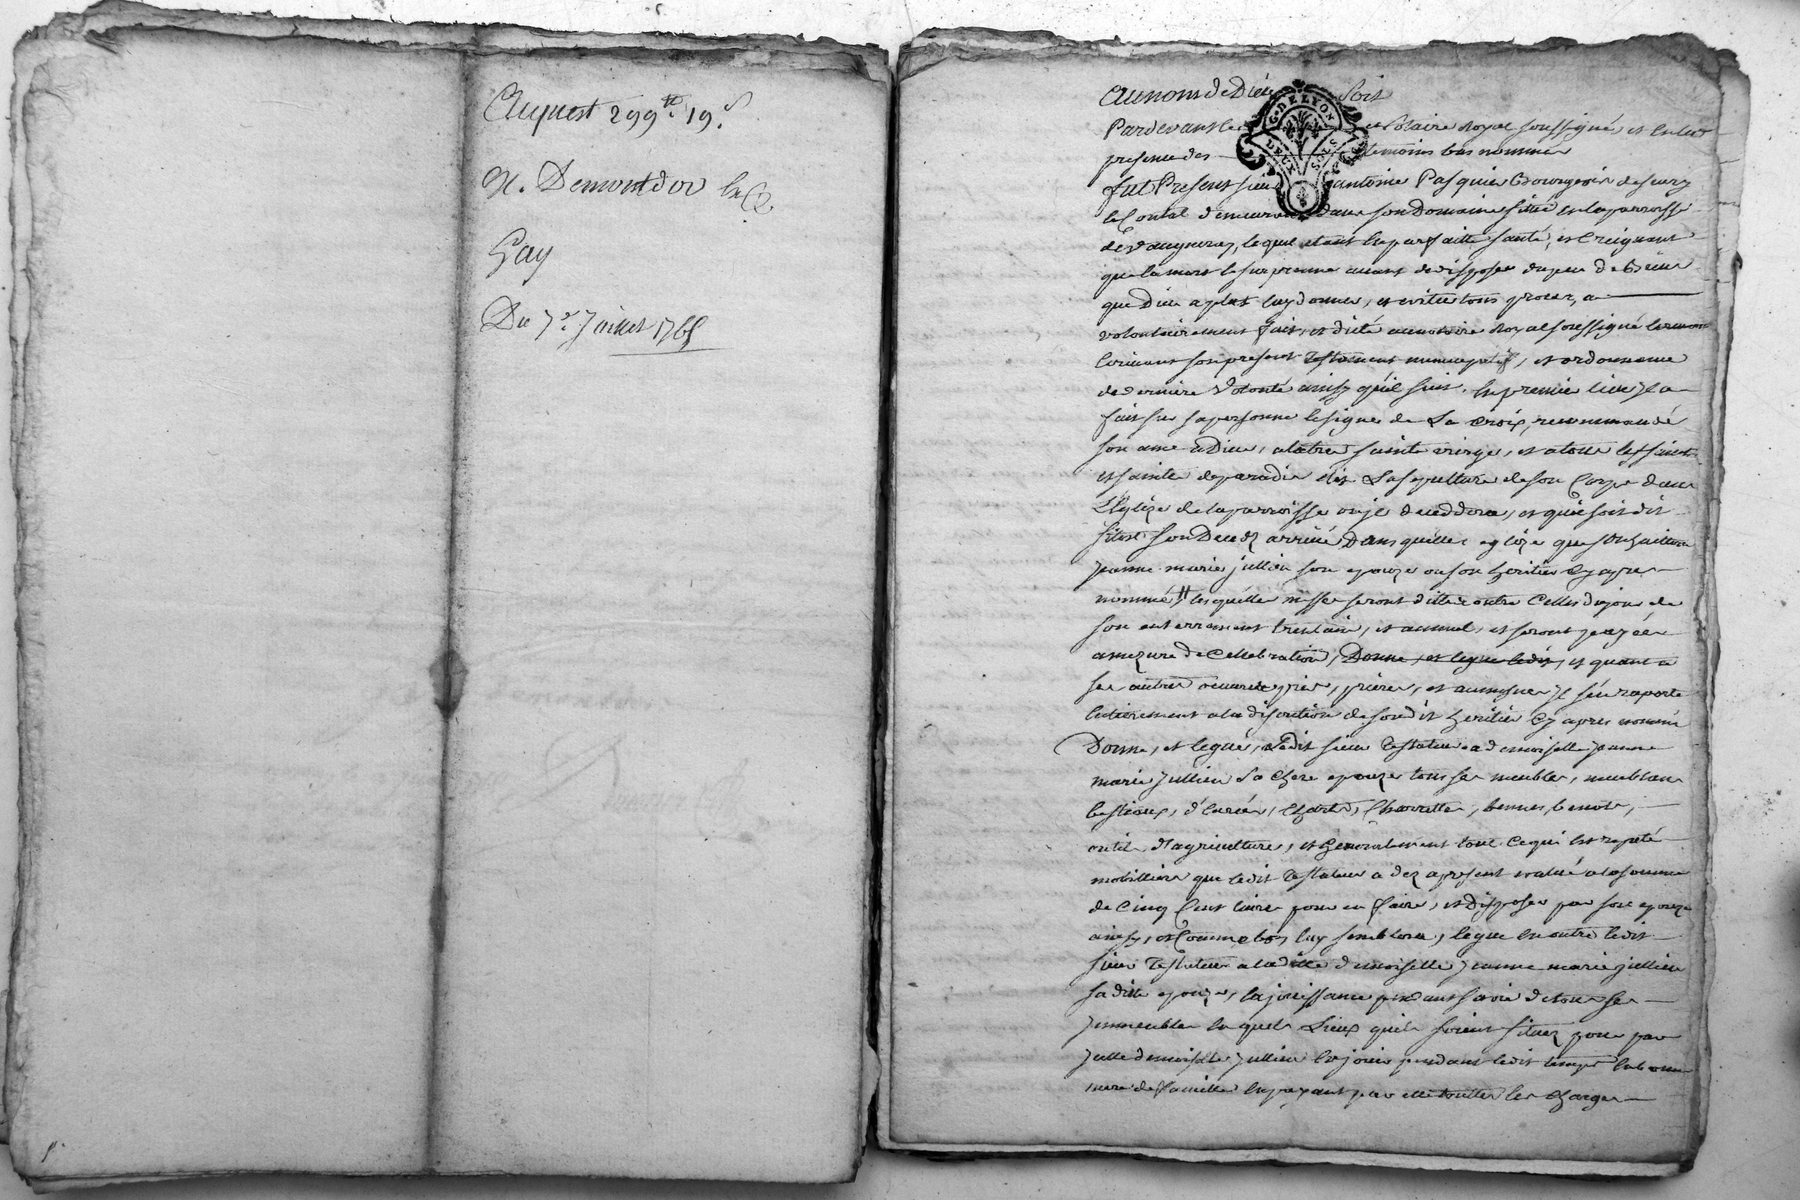 Acquest 299tt 19s
N. Demontdor
Gay
Du 7e Juillet 1765
Au nom de Dieu Soit
G. DE LYON
DEUX SOLS
Pardevant le Notaire Royal soussigné, et en la
presence des temoins bas nommés
fut Present sieur antoine Pasquier Bourgeois de sury
le Contal demeurant dans son Domaine situé en la parroisse
de vaugneray, lequel etant en parfaitte santé, et Creignant
que la mort le surprenne avant de disposer du peu de Biens
que Dieu a plut luy donner, et eviter tous proces, a
volontairement fait, et dicté au notaire Royal soussigné
Ecrivant son present testament nuncupatif, et ordonnance
de derniere volonté ainsy qu'il suit. En premier lieu Il a
fait sur sa personne le signe de La Croix, recommandé
son ame a Dieu, a la tres sainte vierge, et a tous les saints
et saintes de paradis elit La sepulture de son Corps dans
L'Eglize de la parroisse ou il deceddera, et quil soit dit
sitost son Decedz arrivé Dans quelle eglize que souhaittera
Jeanne marie Jullien son epouze ou son heritier cy apres
nommé, lesquelles messes seront dittes outre Celles du jour de
son enterrement trentain, et annuel, et seront payées
a mezure de Cellebration, Donne, et legue ledit, et quant a
ses autres oeuvres pies, prieres, et aumosnes Il s'en raporte
Entierement a la discretion de sondit heritier Cy apres nommé
Donne, et legue, Ledit sieur Testateur a demoiselle Jeanne
marie Jullien Sa Chere epouze tous ses meubles, meublans
bestiaux, d'Enrées, Chards, Charrettes, bennes, bennots,
outils d'agriculture, et Generalement tout Ce qui Est reputé
mobilliers que ledit Testateur a dez a present evalué a la somme
de Cinq Cent livres pour en faire, et Disposer par son epouze
ainsy, et Comme bon luy semblera, legue En outre ledit
sieur Testateur a laditte demoiselle Jeanne marie Jullien
sa ditte epouze, la jouissance pendant sa vie de tous ses
Immeubles En quels Lieux quils soient situez pour par
Icelle demoiselle Jullien En jouir pendant ledit temps En bonne
mere de famille En payant par elle touttes les Charges